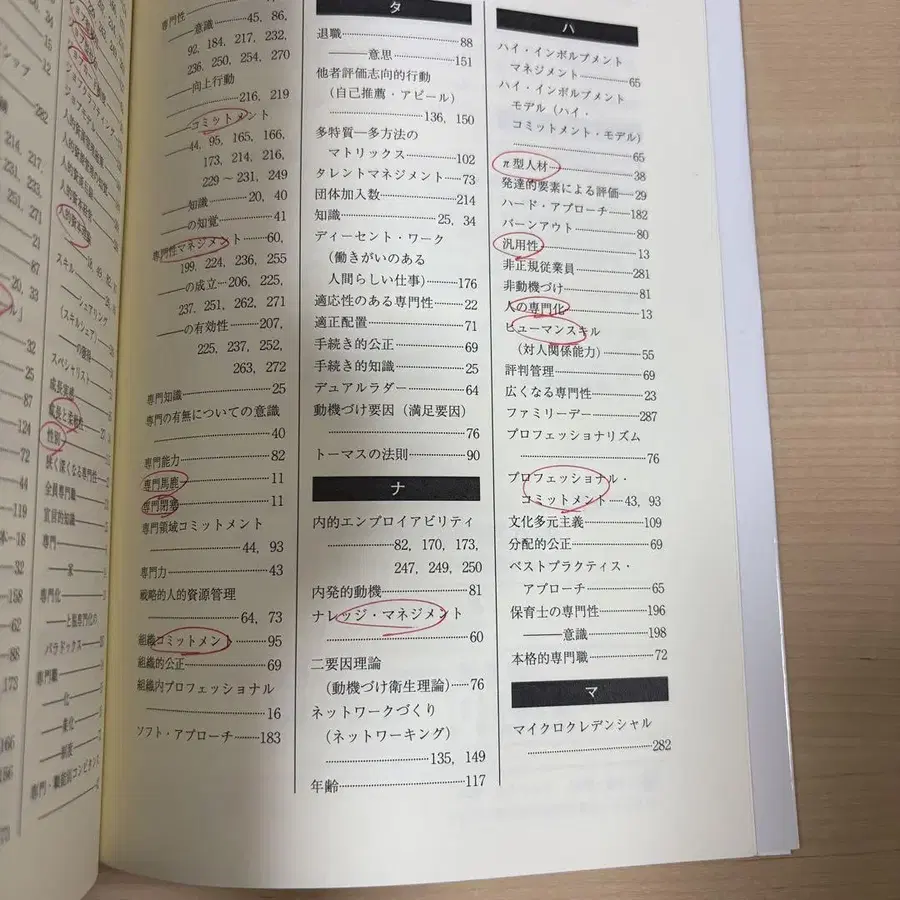 ショップ
12
282
214, 217
231, 233,
251, 271
21
87
20, 33
32
25
87
124
72
44
119
18
32
158
62
88
173
166
186
スキル
シェアリング
(スキルシェア)
の獲得
スペシャリスト
成長実感
成長と柔軟性
性別
狭く深くなる専門性
全員専門職
宣言的知識
専門
家
専門化
と脱専門化の
パラドックス
専門職
化
集化
制度
専門・職能的コンピタンス
専門性
――意識……45, 86,
92, 184, 217, 232,
236, 250, 254, 270
――向上行動
……216, 219
――コミットメント
……44, 95, 165, 166,
173, 214, 216,
229～231, 249
――知識……20, 40
――の知覚……41
専門性マネジメント……60,
199, 224, 236, 255
――の成立……206, 225,
237, 251, 262, 271
――の有効性……207,
225, 237, 252,
263, 272
専門知識……25
専門の有無についての意識
……40
専門能力……82
専門馬鹿……11
専門閉塞……11
専門領域コミットメント
……44, 93
専門力……43
戦略的人的資源管理
……64, 73
組織コミットメント……95
組織的公正……69
組織内プロフェッショナル
……16
ソフト・アプローチ……183
タ
退職……88
――意思……151
他者評価志向的行動
(自己推薦・アピール)
……136, 150
多特質―多方法の
マトリックス……102
タレントマネジメント……73
団体加入数……214
知識……25, 34
ディーセント・ワーク
(働きがいのある
人間らしい仕事)……176
適応性のある専門性……22
適正配置……71
手続き的公正……69
手続き的知識……25
デュアルラダー……64
動機づけ要因(満足要因)
……76
トーマスの法則……90
ナ
内的エンプロイアビリティ
……82, 170, 173,
247, 249, 250
内発的動機……81
ナレッジ・マネジメント
……60
二要因理論
(動機づけ衛生理論)……76
ネットワークづくり
(ネットワーキング)
……135, 149
年齢……117
ハ
ハイ・インボルブメント
マネジメント……65
ハイ・インボルブメント
モデル(ハイ・
コミットメント・モデル)
……65
π型人材……38
発達的要素による評価……29
ハード・アプローチ……182
バーンアウト……80
汎用性……13
非正規従業員……281
非動機づけ……81
人の専門化……13
ヒューマンスキル
(対人関係能力)……55
評判管理……69
広くなる専門性……23
ファミリーデー……287
プロフェッショナリズム
……76
プロフェッショナル・
コミットメント……43, 93
文化多元主義……109
分配的公正……69
ベストプラクティス・
アプローチ……65
保育士の専門性……196
――意識……198
本格的専門職……72
マ
マイクロクレデンシャル
……282